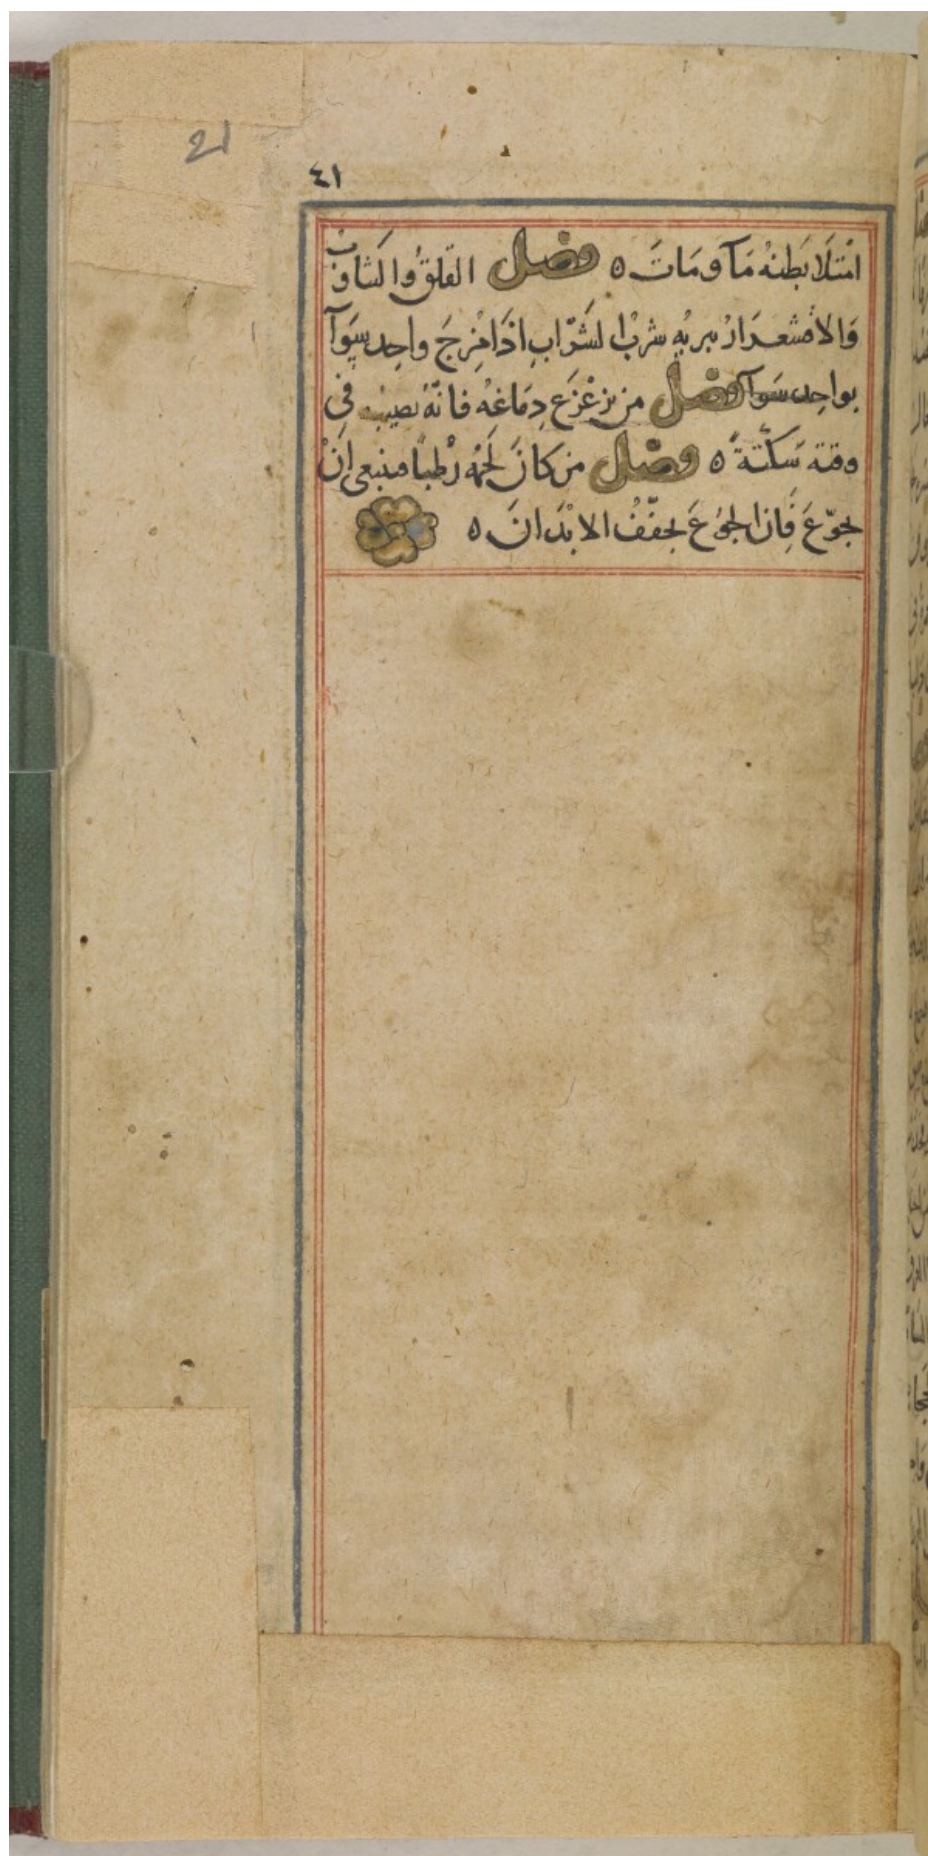 ٤١
امْتَلَا بَطنهُ مَآء ومَاتَ ه فصل القلقُ والتثاوب
وَالاقشعرَارُ يبريه شربُ الشّرابِ اذَا مُزِجَ واحِد سَوآ
بواحِد سَوآ فصل من تزعْزَع دِمَاغهُ فانّهُ تصيبه فى
وقته سَكتَةٌ ه فصل من كانَ لحمُه رطْباً فينبغى انْ
يجوّعَ فَان الجُوعَ يجفّفُ الابْدَانَ ه